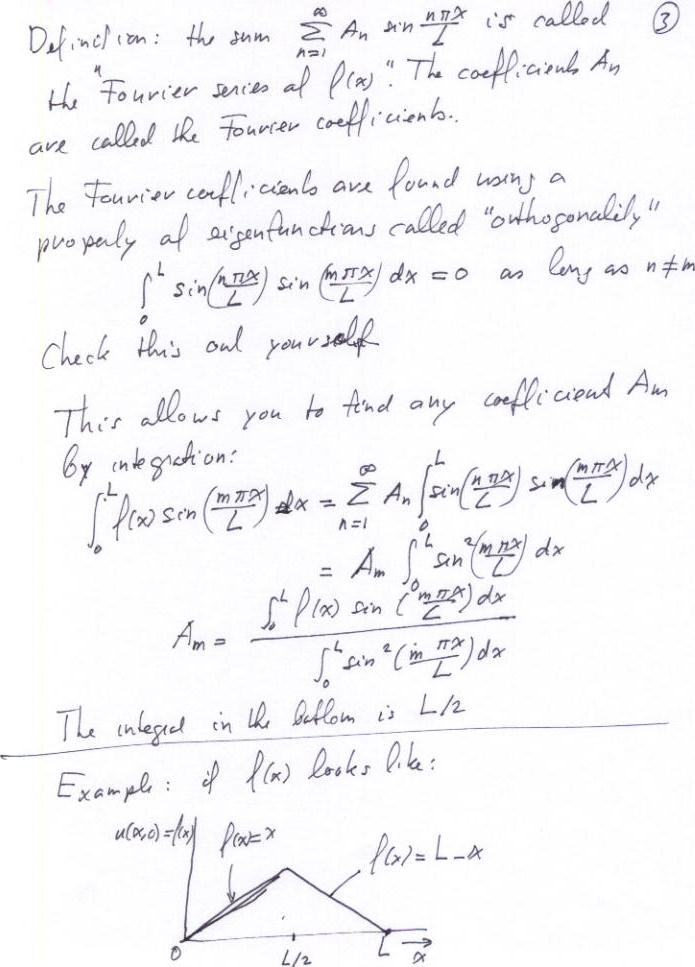 Definition: the sum ∞∑n=1 An sin nπx/L is called ③
the "Fourier series of f(x)". The coefficients An
are called the Fourier coefficients.
The Fourier coefficients are found using a
property of eigenfunctions called "orthogonality"
∫₀ᴸ sin(nπx/L) sin(mπx/L) dx = 0 as long as n≠m
Check this out yourself
This allows you to find any coefficient Am
by integration:
∫₀ᴸ f(x) sin(mπx/L) dx = ∞∑n=1 An ∫₀ᴸ sin(nπx/L) sin(mπx/L) dx
= Am ∫₀ᴸ sin²(mπx/L) dx
Am = ∫₀ᴸ f(x) sin(mπx/L) dx / ∫₀ᴸ sin²(mπx/L) dx
The integral in the bottom is L/2
Example: if f(x) looks like:
u(x,0)=f(x) f(x)=x
f(x)=L-x
0 L/2 L x